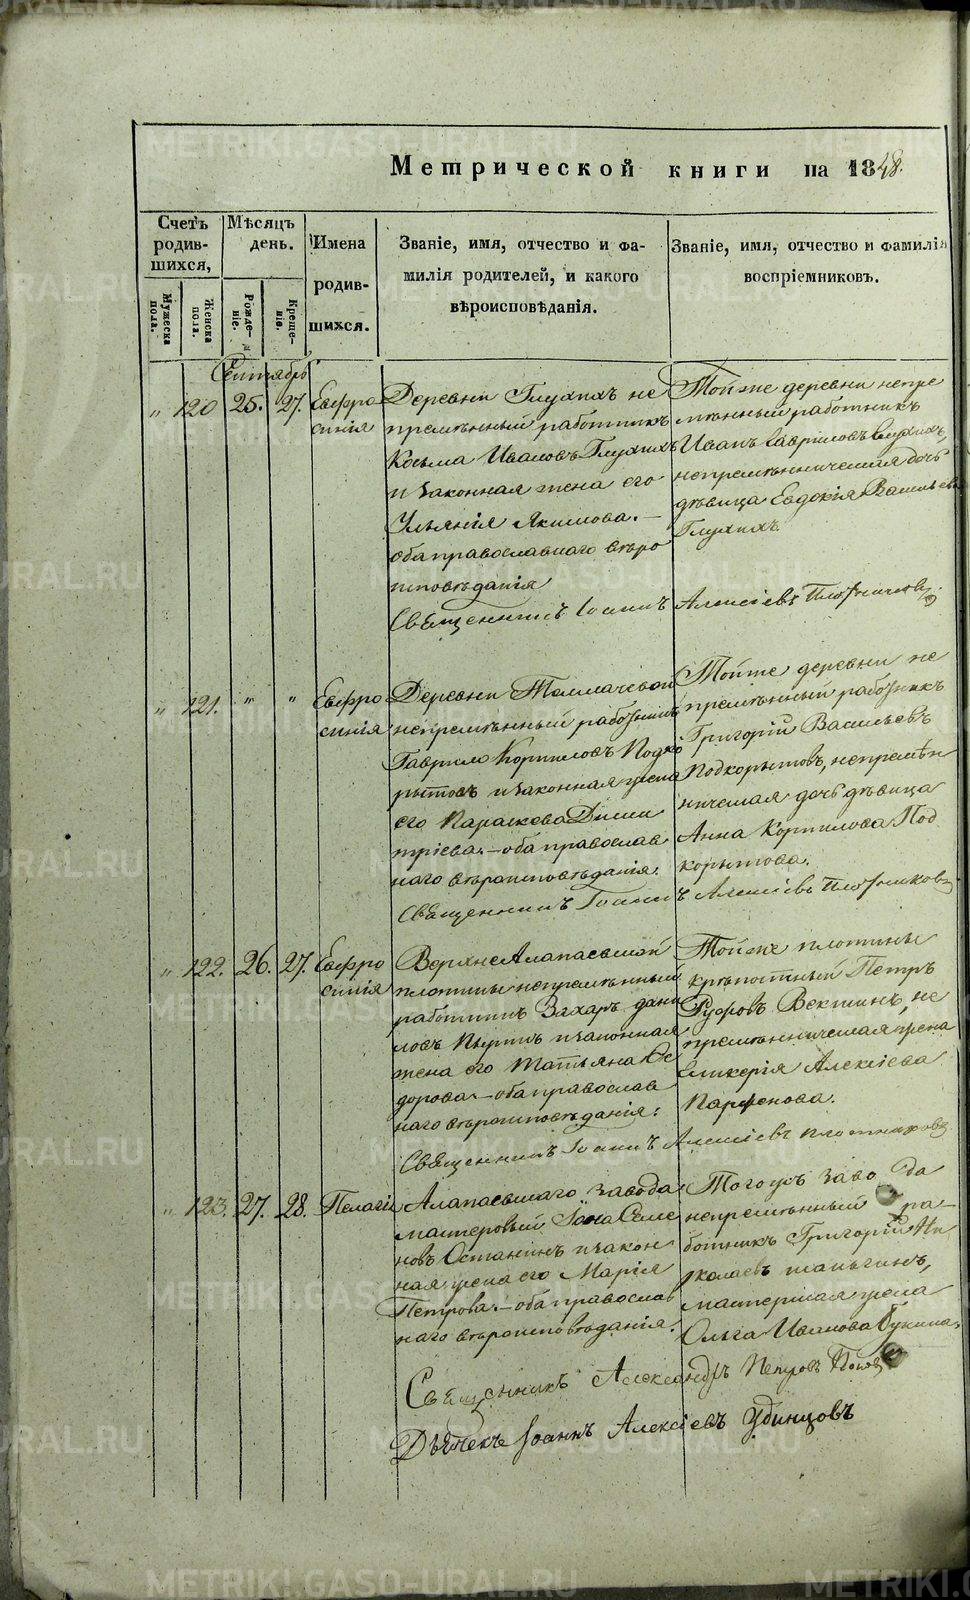 Метрической книги на 1848.
Счетъ родив-шихся,
Мѣсяцъ день.
Имена родив-шихся.
Званіе, имя, отчество и фа-
милія родителей, и какого
вѣроисповѣданія.
Званіе, имя, отчество и фамилія
воспріемниковъ.
Мужеска пола.
Женска пола.
Рожде-ніе.
Креще-ніе.
Сентябрь
" 120 25. 27. Евфро
синія
Деревни Глухихъ не
премѣнный работникъ
Косьма Ивановъ Глухихъ
и законная жена его
Ульянія Якимова. —
оба православнаго вѣро
исповѣданія
Тойже деревни непре
мѣнный работникъ
Иванъ Гавриловъ Глухихъ,
непремѣнническая дочь
дѣвица Евдокія Васильева
Глухихъ.
Священникъ Іоаннъ Алексіевъ Плотниковъ
" 121. " " Евфро
синія
Деревни Толмачевой
непремѣнный работникъ
Гаврило Корниловъ Подко
рытовъ и законная жена
его Параскева Дими
тріева. — оба православ
наго вѣроисповѣданія.
Тойже деревни не
премѣнный работникъ
Григорій Васильевъ
Подкорытовъ, непремѣн
ническая дочь дѣвица
Анна Корнилова Под
корытова.
Священникъ Іоаннъ Алексіевъ Плотниковъ
" 122. 26. 27. Евфро
синія
Верхне Алапаевской
плотины непремѣнный
работникъ Захаръ Дани
ловъ и законная
жена его Татьяна Ѳе
дорова — оба православ
наго вѣроисповѣданія:
Тойже плотины
крѣпостный Петръ
Руфовъ Векшинъ, не
премѣнническая жена
Гликерія Алексіева
Парфенова.
Священникъ Іоаннъ Алексіевъ Плотниковъ
" 123. 27. 28. Пелагія
Алапаевскаго завода
мастеровый Іона Семе
новъ Останинъ и закон
ная жена его Марія
Петрова. — оба православ
наго вѣроисповѣданія.
Тогожъ заво да
непремѣнный ра-
ботникъ Григорій Ни
колаевъ
мастерская жена
Ольга Иванова Букина.
Священникъ Александръ Петровъ Поповъ
Дьячекъ Іоаннъ Алексіевъ Удинцовъ
METRIKI.GASO-URAL.RU